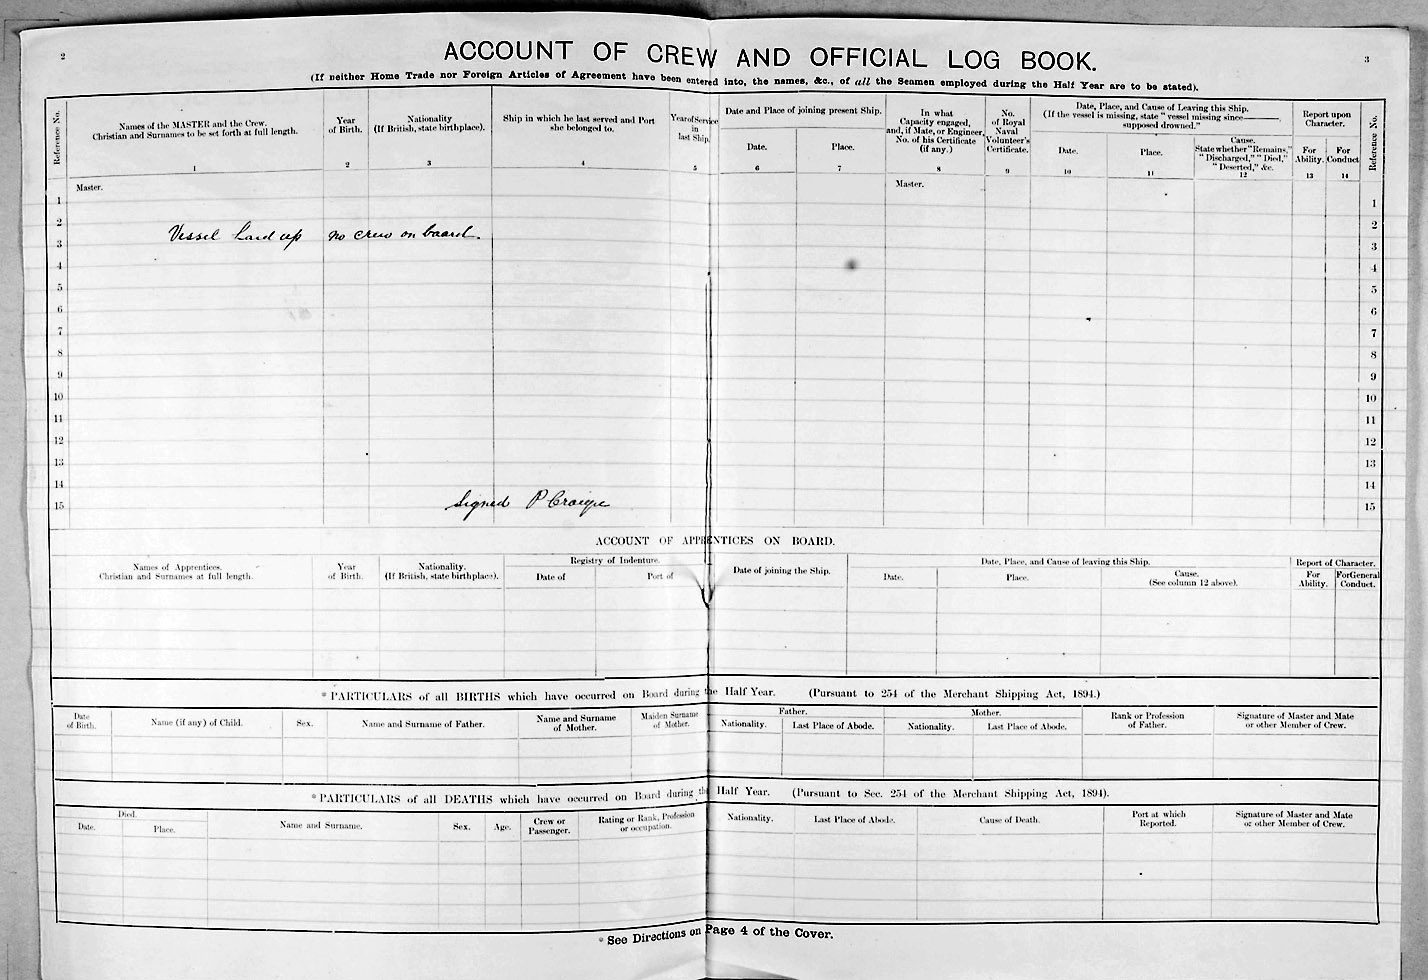 2
ACCOUNT OF CREW AND OFFICIAL LOG BOOK.
3
(If neither Home Trade nor Foreign Articles of Agreement have been entered into, the names, &c., of all the Seamen employed during the Half Year are to be stated).
Reference No.
Names of the MASTER and the Crew.
Christian and Surnames to be set forth at full length.
1
Year
of Birth.
2
Nationality
(If British, state birthplace).
3
Ship in which he last served and Port
she belonged to.
4
Year of Service
in
last Ship.
5
Date and Place of joining present Ship.
Date.
6
Place.
7
In what
Capacity engaged,
and, if Mate, or Engineer,
No. of his Certificate
(if any.)
8
No.
of Royal
Naval
Volunteer's
Certificate.
9
Date, Place, and Cause of Leaving this Ship.
(If the vessel is missing, state "vessel missing since———,
supposed drowned."
Date.
10
Place.
11
Cause.
State whether "Remains,"
"Discharged," "Died,"
"Deserted," &c.
12
Report upon
Character.
For
Ability.
13
For
Conduct
14
Reference No.
Master.
Master.
1
1
2
2
Vessel laid up no crew on board.
3
3
4
4
5
5
6
6
7
7
8
8
9
9
10
10
11
11
12
12
13
13
14
14
Signed P Craigie
15
15
ACCOUNT OF APPRENTICES ON BOARD.
Names of Apprentices.
Christian and Surnames at full length.
Year
of Birth.
Nationality.
(If British, state birthplace).
Registry of Indenture.
Date of
Port of
Date of joining the Ship.
Date, Place, and Cause of leaving this Ship.
Date.
Place.
Cause.
(See column 12 above).
Report of Character.
For
Ability.
For General
Conduct.
*PARTICULARS of all BIRTHS which have occurred on Board during the Half Year. (Pursuant to 254 of the Merchant Shipping Act, 1894.)
Date
of Birth.
Name (if any) of Child.
Sex.
Name and Surname of Father.
Name and Surname
of Mother.
Maiden Surname
of Mother.
Father.
Nationality.
Last Place of Abode.
Mother.
Nationality.
Last Place of Abode.
Rank or Profession
of Father.
Signature of Master and Mate
or other Member of Crew.
*PARTICULARS of all DEATHS which have occurred on Board during the Half Year. (Pursuant to Sec. 254 of the Merchant Shipping Act, 1894).
Died.
Date.
Place.
Name and Surname.
Sex.
Age.
Crew or
Passenger.
Rating or Rank, Profession
or occupation.
Nationality.
Last Place of Abode.
Cause of Death.
Port at which
Reported.
Signature of Master and Mate
or other Member of Crew.
*See Directions on Page 4 of the Cover.